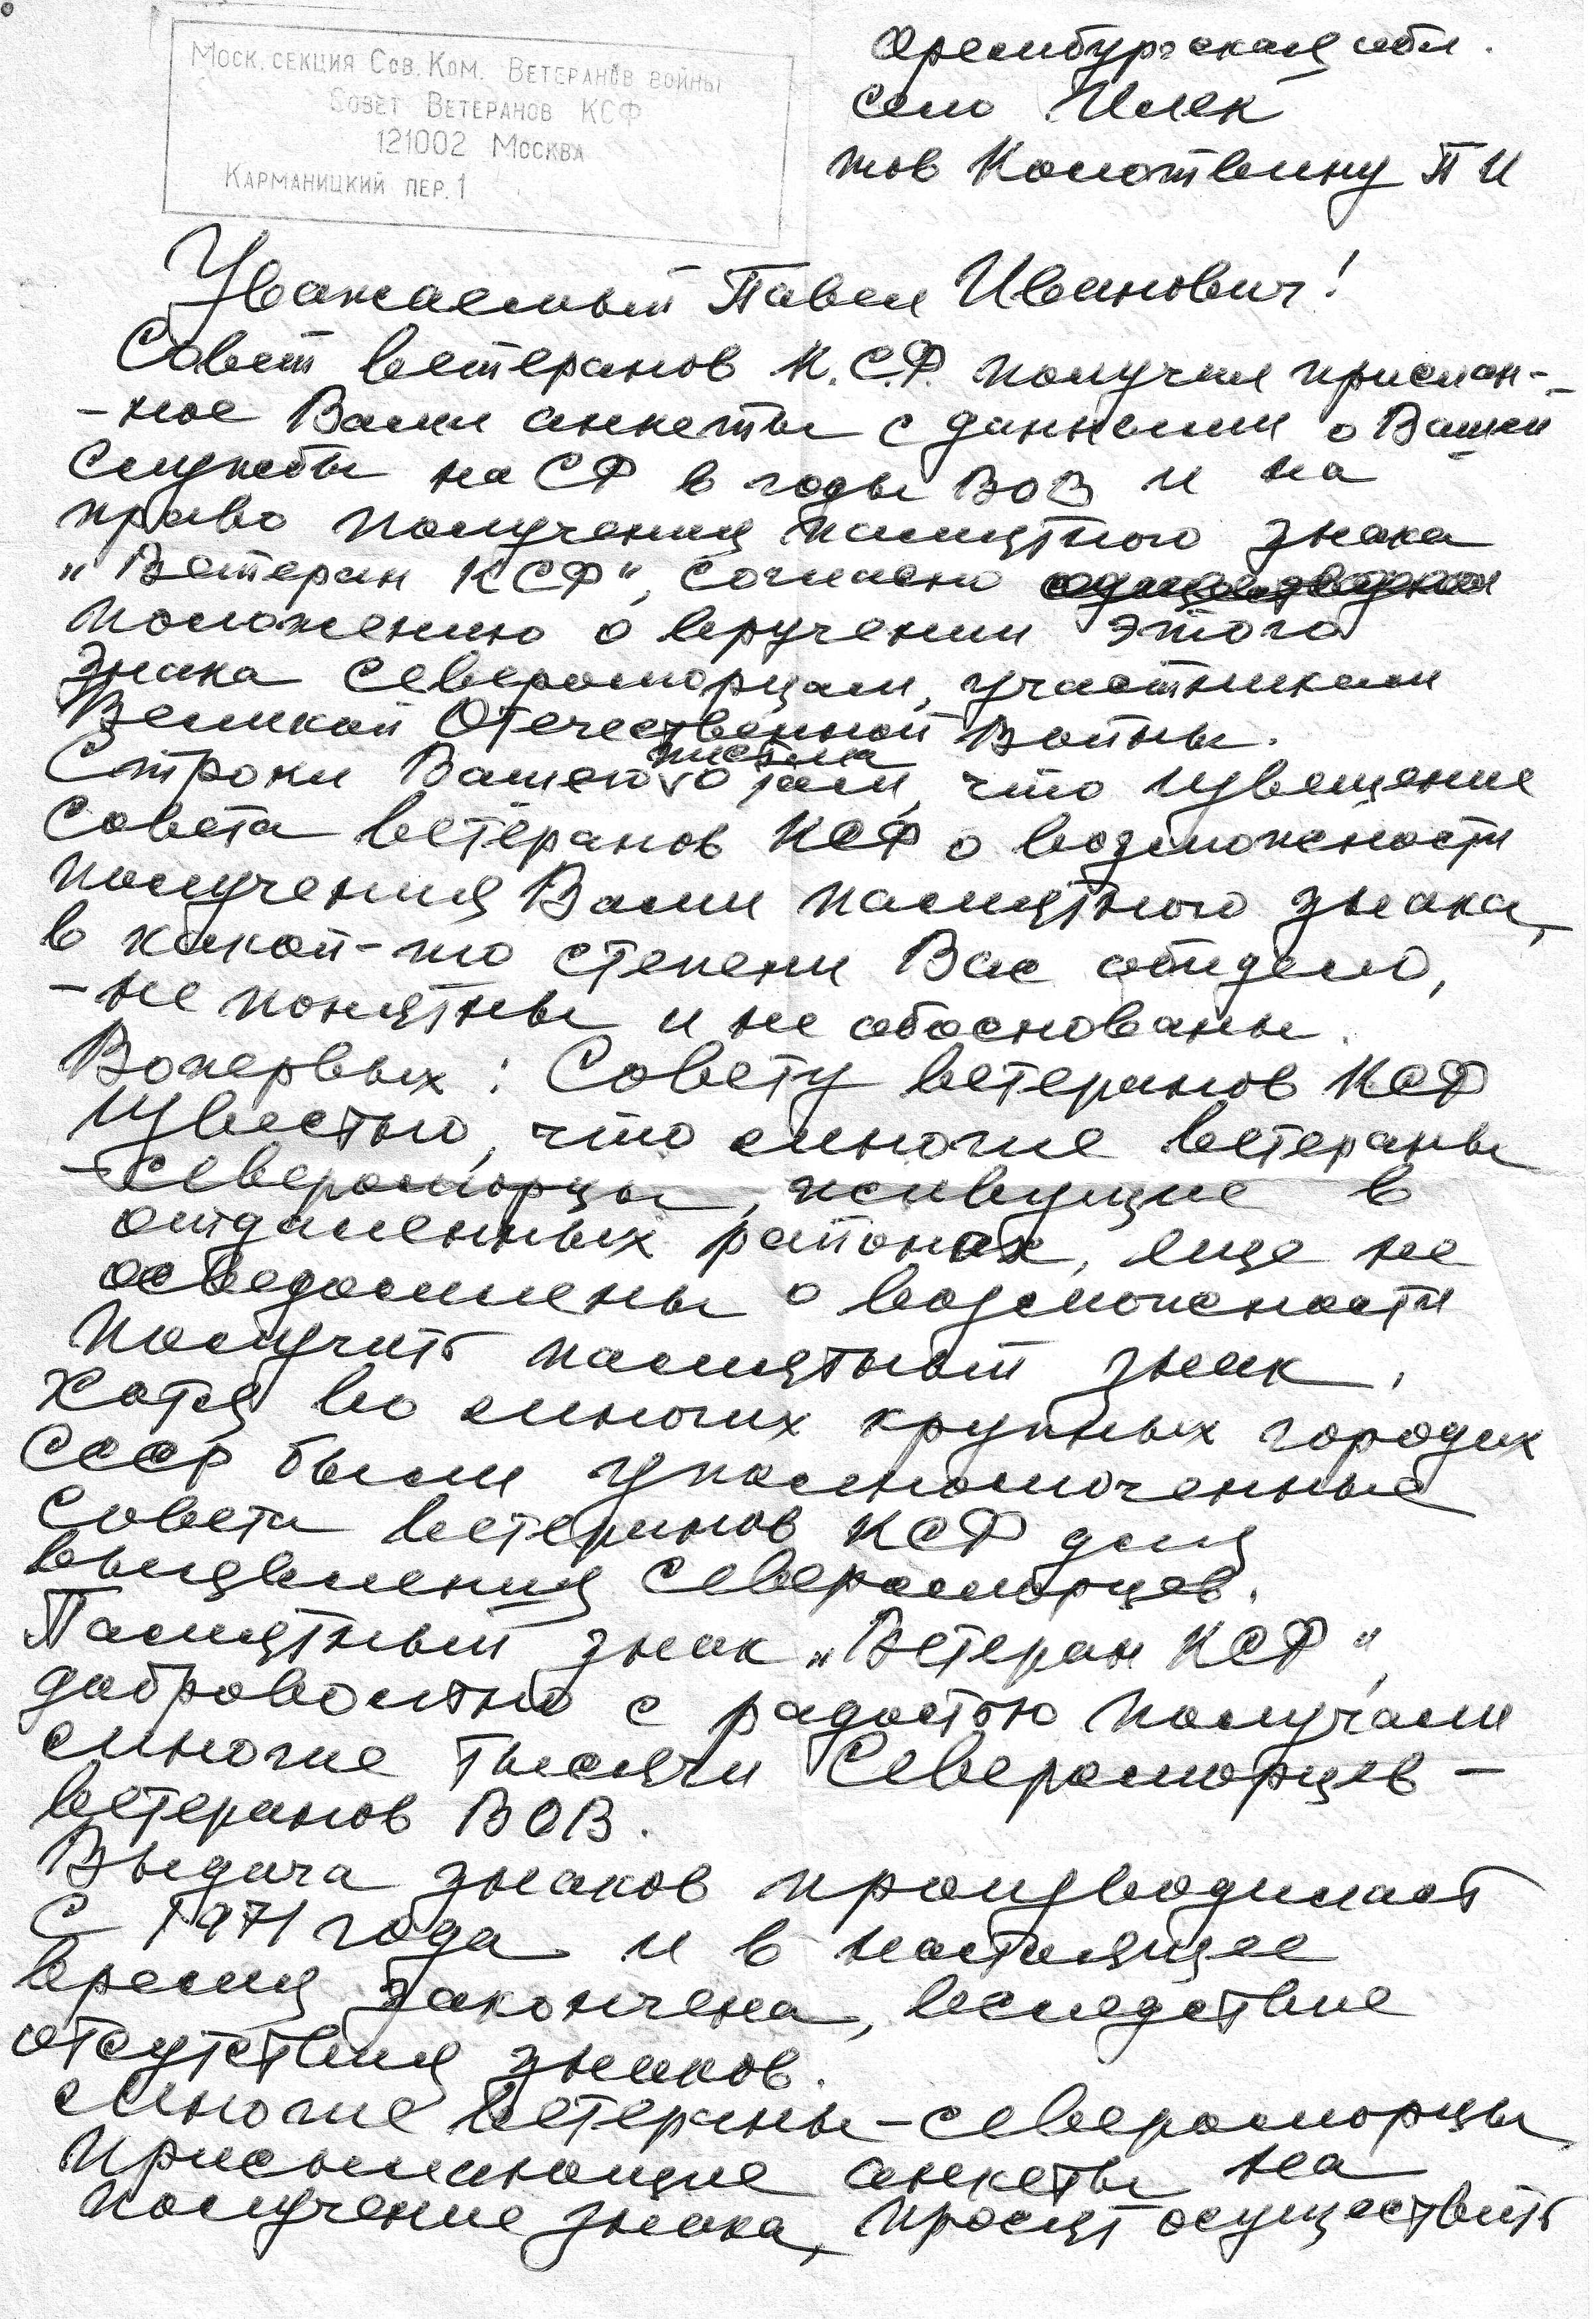 Моск. секция Сов. Ком. Ветеранов войны
Совет Ветеранов КСФ
121002 Москва
Карманицкий пер. 1
Оренбургская обл.
село Илек
тов Колотвину П И
Уважаемый Павел Иванович!
Совет ветеранов К.С.Ф. получил прислан-
-ные Вами анкеты с данными о Вашей
службы на СФ в годы ВОВ и на
право получения памятного знака
„Ветеран КСФ", согласно
положению о вручении этого
знака североморцам, участникам
Великой Отечественной Войны.
Строки Вашего письма о том, что извещение
Совета ветеранов КСФ о возможности
получения Вами памятного знака,
в какой-то степени Вас обидело,
-не понятны и не обоснованы.
Вопервых: Совету ветеранов КСФ
известно, что многие ветераны
-североморцы, живущие в
отдаленных районах, еще не
осведомлены о возможности
получить памятный знак,
хотя во многих крупных городах
СССР были уполномоченные
Совета ветеранов КСФ для
выявления североморцев.
Памятный знак „Ветеран КСФ",
добровольно с радостью получали
многие тысячи Североморцев –
ветеранов ВОВ.
Выдача знаков производилась
С 1971 года и в настоящее
время закончена, вследствие
отсутствия знаков.
Многие ветераны-североморцы,
присылающие анкеты на
получение знака, просят осуществить